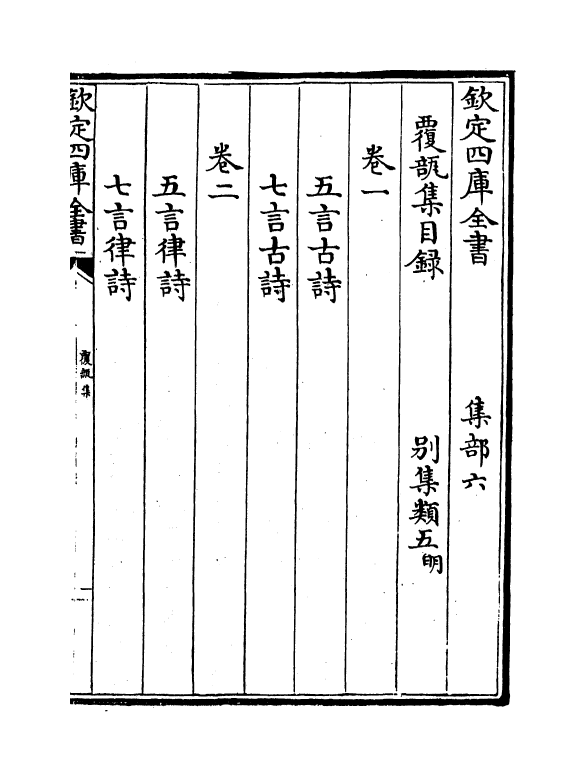 欽定四庫全書　　　集部六
覆瓿集目録　　　別集類五明
卷一
五言古詩
七言古詩
卷二
五言律詩
七言律詩
欽定四庫全書
覆瓿集